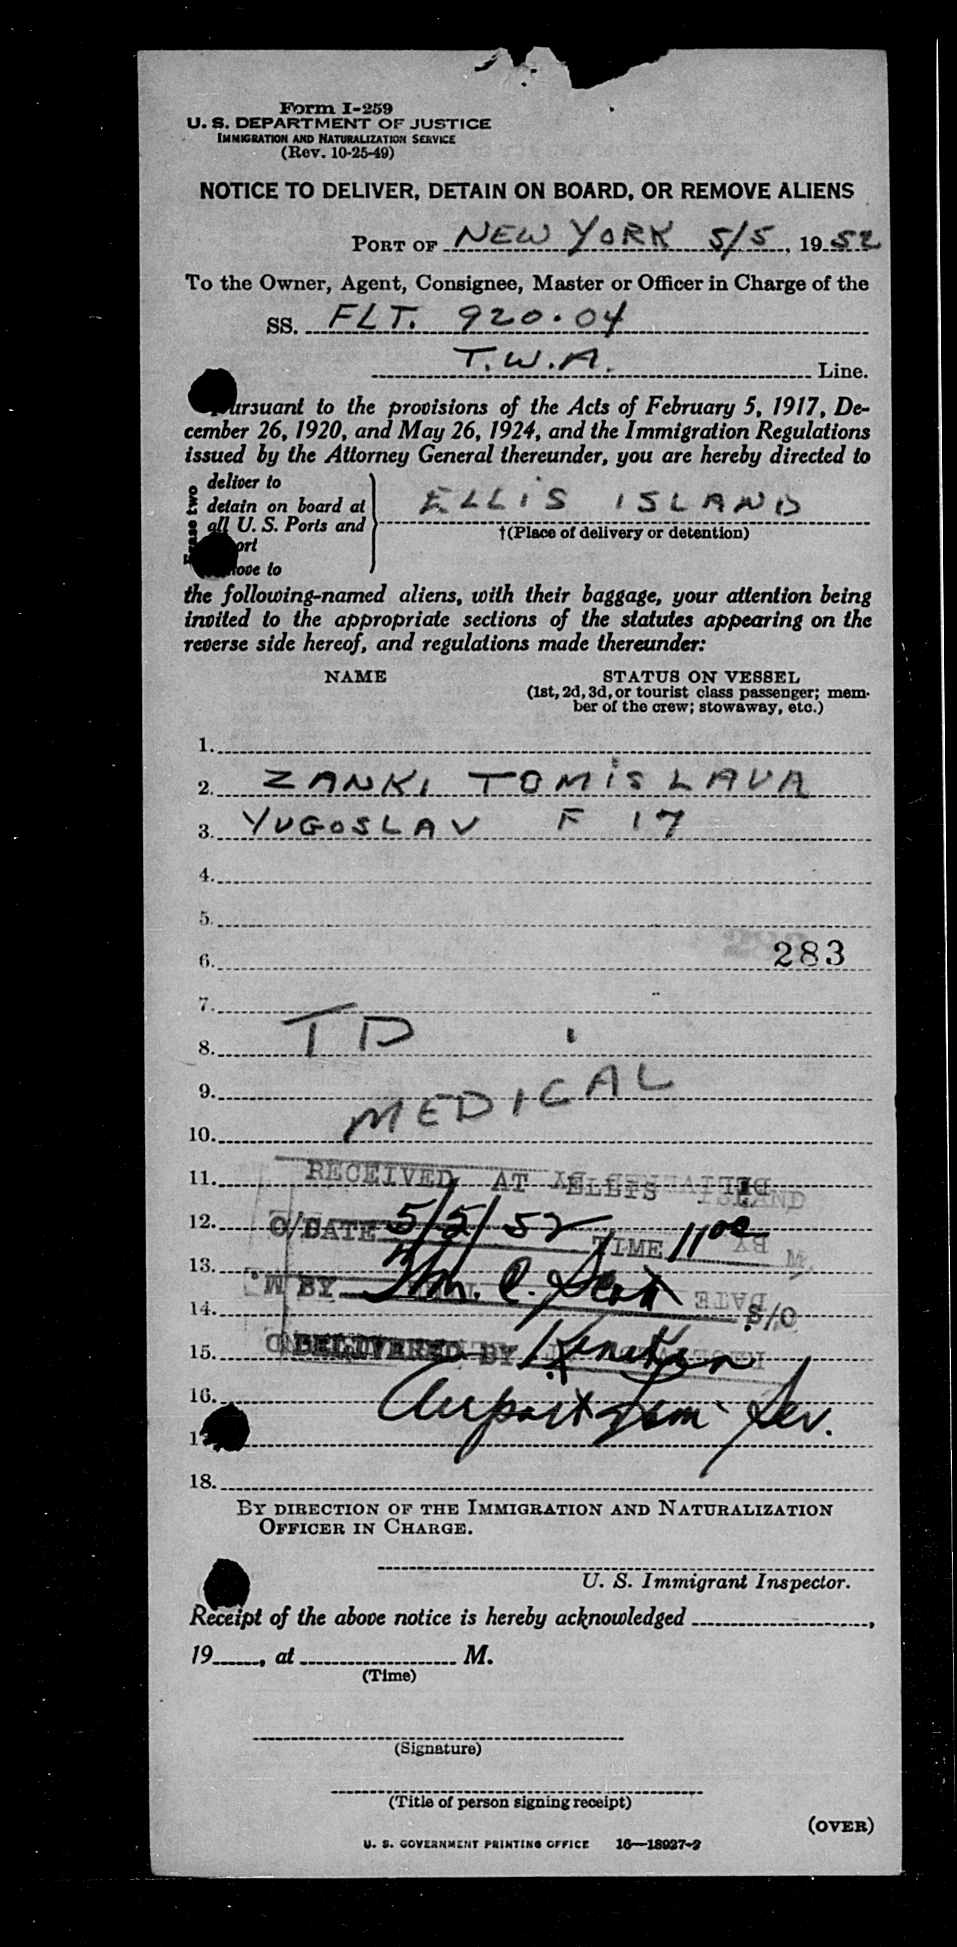 Form I-259
U. S. DEPARTMENT OF JUSTICE
IMMIGRATION AND NATURALIZATION SERVICE
(Rev. 10-25-49)
NOTICE TO DELIVER, DETAIN ON BOARD, OR REMOVE ALIENS
PORT OF NEW YORK 5/5, 1952
To the Owner, Agent, Consignee, Master or Officer in Charge of the
SS. FLT. 920.04
T.W.A. Line.
Pursuant to the provisions of the Acts of February 5, 1917, De-
cember 26, 1920, and May 26, 1924, and the Immigration Regulations
issued by the Attorney General thereunder, you are hereby directed to
Erase two
deliver to
detain on board at
all U. S. Ports and
ELLIS ISLAND
†(Place of delivery or detention)
the following-named aliens, with their baggage, your attention being
invited to the appropriate sections of the statutes appearing on the
reverse side hereof, and regulations made thereunder:
NAME STATUS ON VESSEL
(1st, 2d, 3d, or tourist class passenger; mem-
ber of the crew; stowaway, etc.)
1.
2. ZANKI TOMISLAVA
3. YUGOSLAV F 17
4.
5.
6. 283
7.
8. TD
9. MEDICAL
10.
11. RECEIVED AT ELLIS ISLAND
12. DATE 5/5/52 TIME 11
13.
BY Wm. C.
14.
15. DELIVERED BY
16. Airport
18.
BY DIRECTION OF THE IMMIGRATION AND NATURALIZATION
OFFICER IN CHARGE.
U. S. Immigrant Inspector.
Receipt of the above notice is hereby acknowledged ,
19 , at M.
(Time)
(Signature)
(Title of person signing receipt)
(OVER)
U. S. GOVERNMENT PRINTING OFFICE 16—18927-2